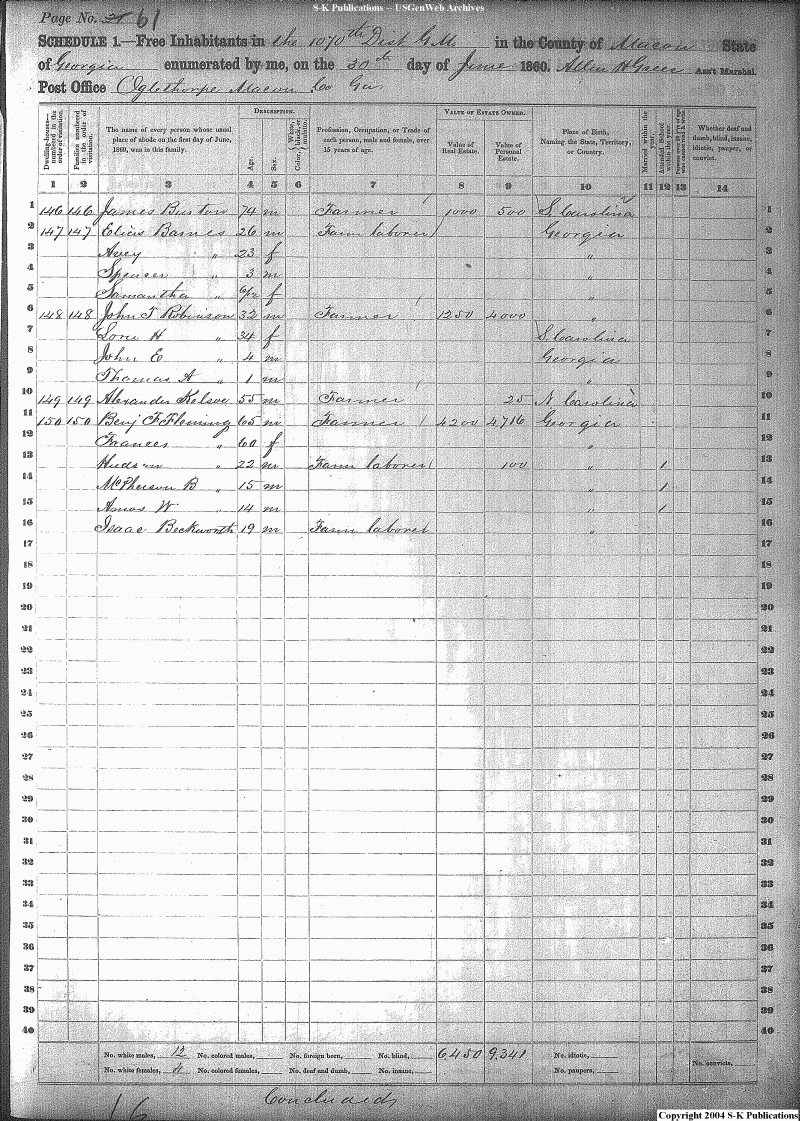 S-K Publications -- USGenWeb Archives
Page No. 61
SCHEDULE 1.—Free Inhabitants in the 1070th Dist G.M. in the County of Macon State
of Georgia enumerated by me, on the 30th day of June 1860. Allen H Greer Ass't Marshal.
Post Office Oglethorpe Macon Co Ga
Dwelling-houses—numbered in the order of visitation.
Families numbered in the order of visitation.
The name of every person whose usual place of abode on the first day of June, 1860, was in this family.
DESCRIPTION.
Age.
Sex.
Color, White, black, or mulatto.
Profession, Occupation, or Trade of each person, male and female, over 15 years of age.
VALUE OF ESTATE OWNED.
Value of Real Estate.
Value of Personal Estate.
Place of Birth, Naming the State, Territory, or Country.
Married within the year.
Attended School within the year.
Whether deaf and dumb, blind, insane, idiotic, pauper, or convict.
1 2 3 4 5 6 7 8 9 10 11 12 13 14
1 146 146 James Burton 74 m Farmer 1000 500 S. Carolina 1
2 147 147 Barnes 26 m Farm laborer Georgia 2
3 Avey " 23 f " 3
4 Spenser " 3 m " 4
5 Samantha " 6/12 f " 5
6 148 148 John T Robinson 32 m Farmer 1250 4000 " 6
7 H " 34 f S. Carolina 7
8 John E " 4 m Georgia 8
9 Thomas A " 1 m " 9
10 149 149 Alexander Kelsoe 55 m Farmer 25 N Carolina 10
11 150 150 Benj F Fleming 65 m Farmer 4200 4716 Georgia 11
12 Frances " 60 f " 12
13 Hudson " 22 m Farm laborer 100 " 1 13
14 McPherson B " 15 m " 1 14
15 Amos W " 14 m " 1 15
16 Isaac Beckworth 19 m Farm laborer " 16
17 17
18 18
19 19
20 20
21 21
22 22
23 23
24 24
25 25
26 26
27 27
28 28
29 29
30 30
31 31
32 32
33 33
34 34
35 35
36 36
37 37
38 38
39 39
40 40
No. white males, 12 No. colored males, No. foreign born, No. blind, 6,450 9,341 No. idiotic,
No. white females, 4 No. colored females, No. deaf and dumb, No. insane, No. paupers, No. convicts,
16 Concluded
Copyright 2004 S-K Publications